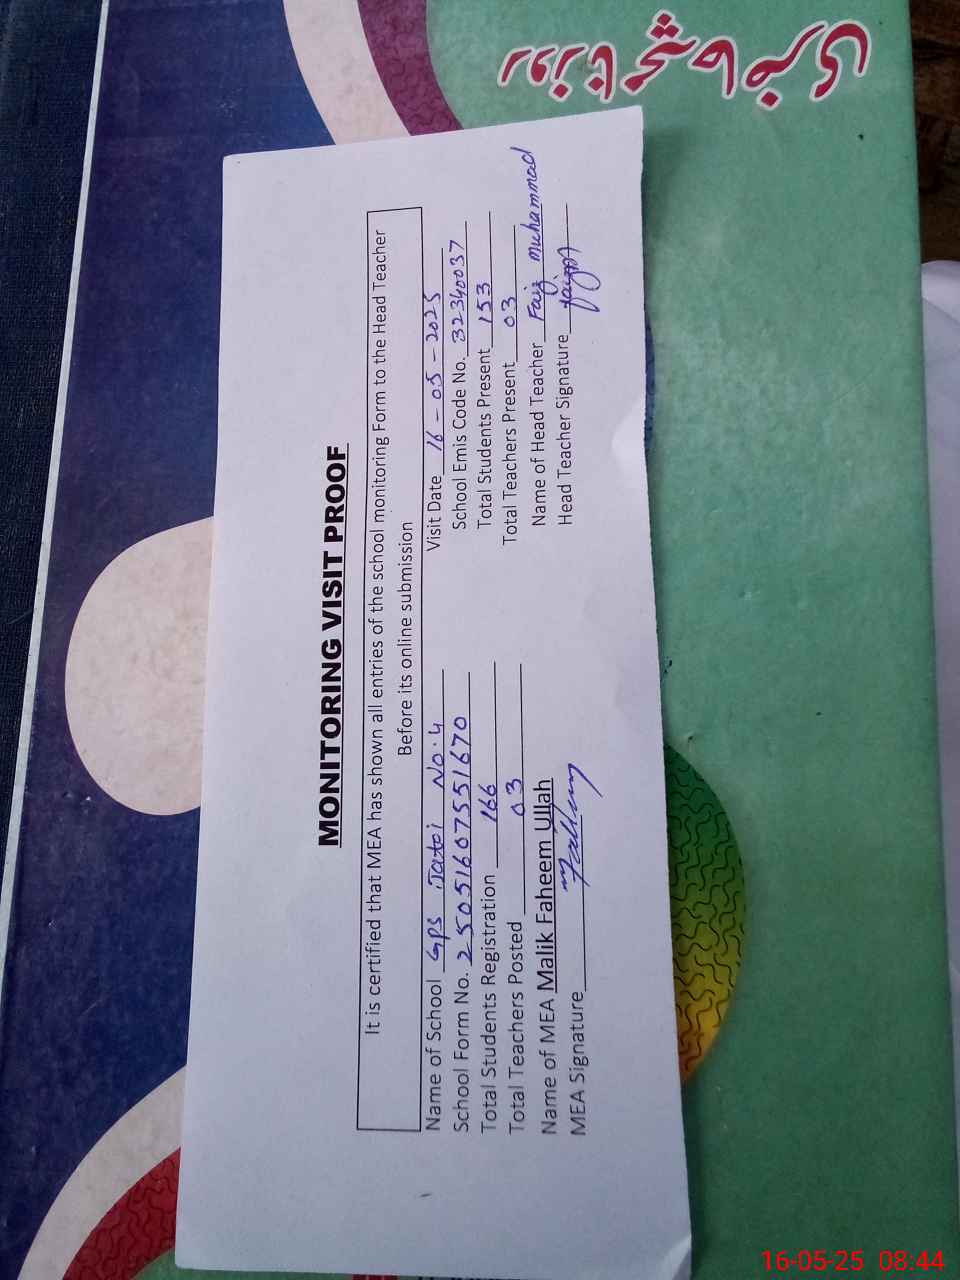 روزنامچہ حاضری
MONITORING VISIT PROOF
It is certified that MEA has shown all entries of the school monitoring Form to the Head Teacher
Before its online submission
Name of School GPS Jatoi No.4 Visit Date 16-05-2025
School Form No. 2505160755 1670 School Emis Code No. 32340037
Total Students Registration 166 Total Students Present 153
Total Teachers Posted 03 Total Teachers Present 03
Name of MEA Malik Faheem Ullah Name of Head Teacher Faiz Muhammad
MEA Signature Faheem Head Teacher Signature
16-05-25 08:44